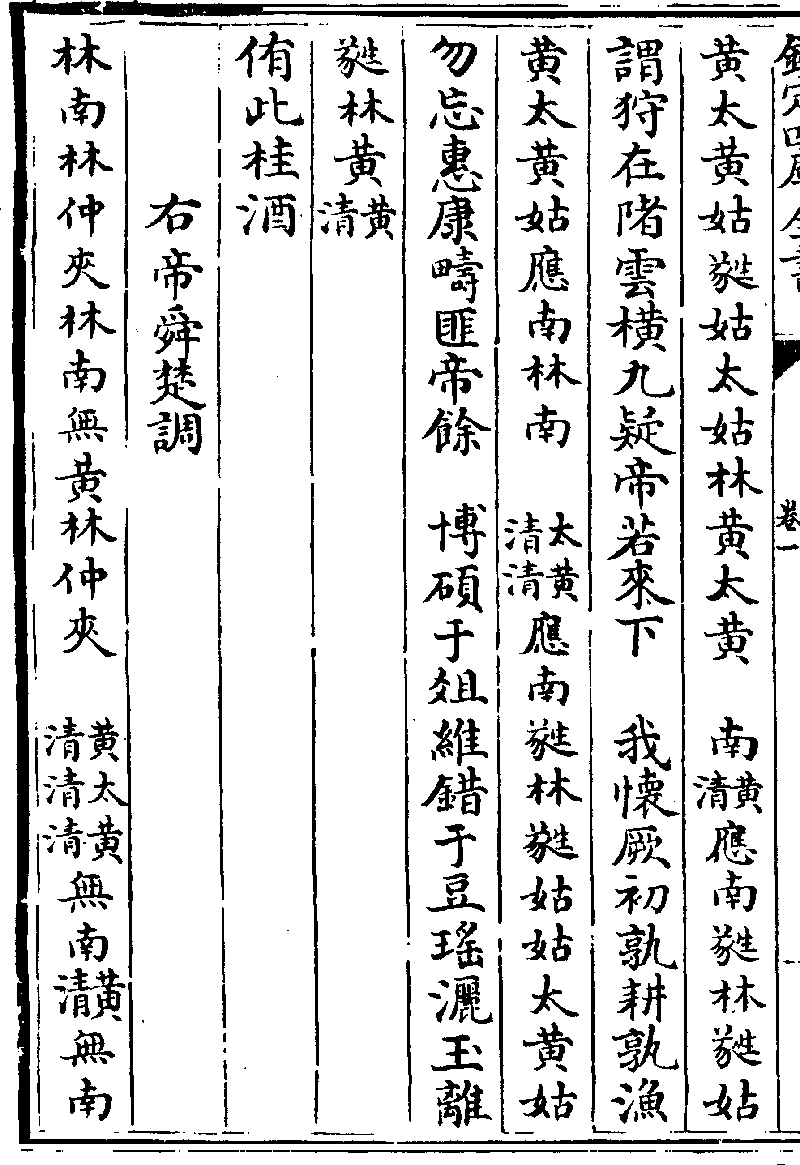 欽定四庫全書 卷一
黄太黄姑蕤姑太姑林黄太黄 南黄清應南蕤林蕤姑
謂狩在陼雲横九疑帝若來下 我懷厥初孰耕孰漁
黄太黄姑應南林南 太清黄清應南蕤林蕤姑姑太黄姑
勿忘惠康疇匪帝餘 博碩于俎維錯于豆瑶灑玉離
蕤林黄黄清
侑此桂酒
右帝舜楚調
林南林仲夾林南無黄林仲夾 黄清太清黄清無南黄清無南